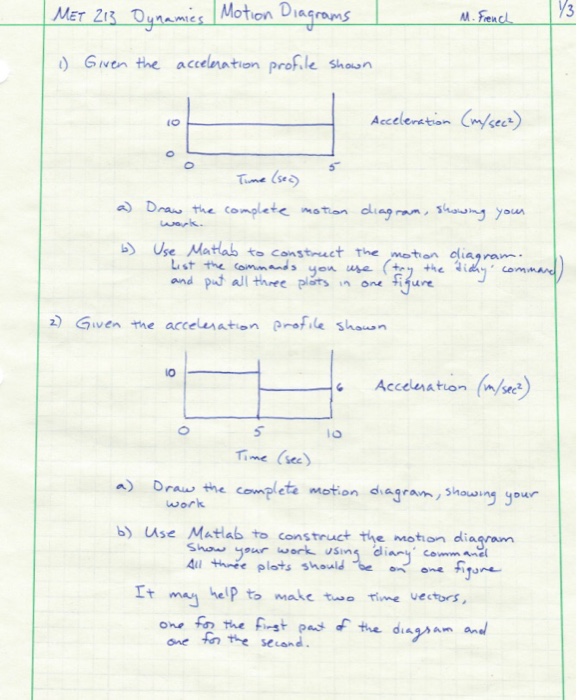 MET 213 Dynamics Motion Diagrams M. French 1/3
1) Given the acceleration profile shown
10
Acceleration (m/sec²)
0
0 5
Time (sec)
a) Draw the complete motion diagram, showing your
work.
b) Use Matlab to construct the motion diagram.
List the commands you use (try the 'diary' command)
and put all three plots in one figure
2) Given the acceleration profile shown
10
6 Acceleration (m/sec²)
0 5 10
Time (sec)
a) Draw the complete motion diagram, showing your
work
b) Use Matlab to construct the motion diagram
Show your work using 'diary' command
All three plots should be on one figure
It may help to make two time vectors,
one for the first part of the diagram and
one for the second.